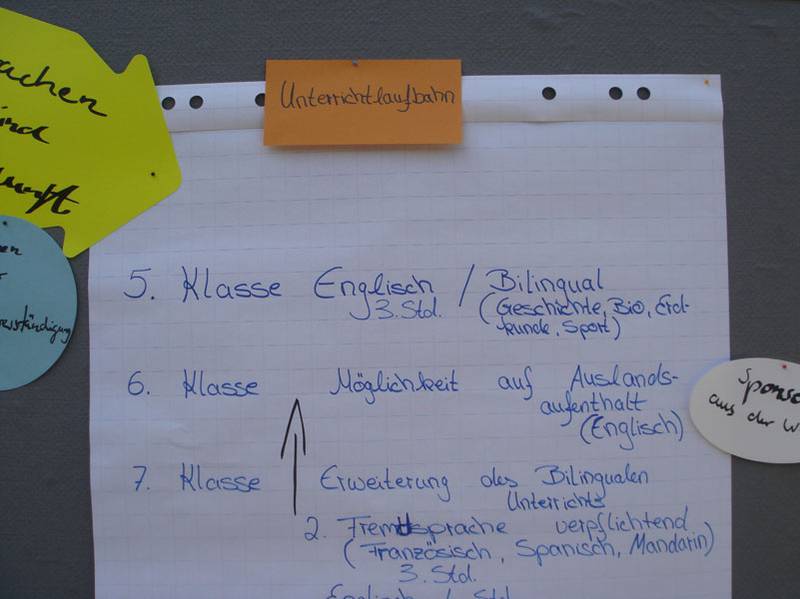 achen
ind
Unterrichtlaufbahn
5. Klasse Englisch / Bilingual
3. Std. (Geschichte, Bio, Erd-
kunde, Sport)
6. Klasse Möglichkeit auf Auslands-
aufenthalt
(Englisch)
7. Klasse Erweiterung des Bilingualen
Unterrichts
2. Fremdsprache verpflichtend
(Französisch, Spanisch, Mandarin)
3. Std.
Englisch
Std.
en
verständigung
Sponso
aus der W